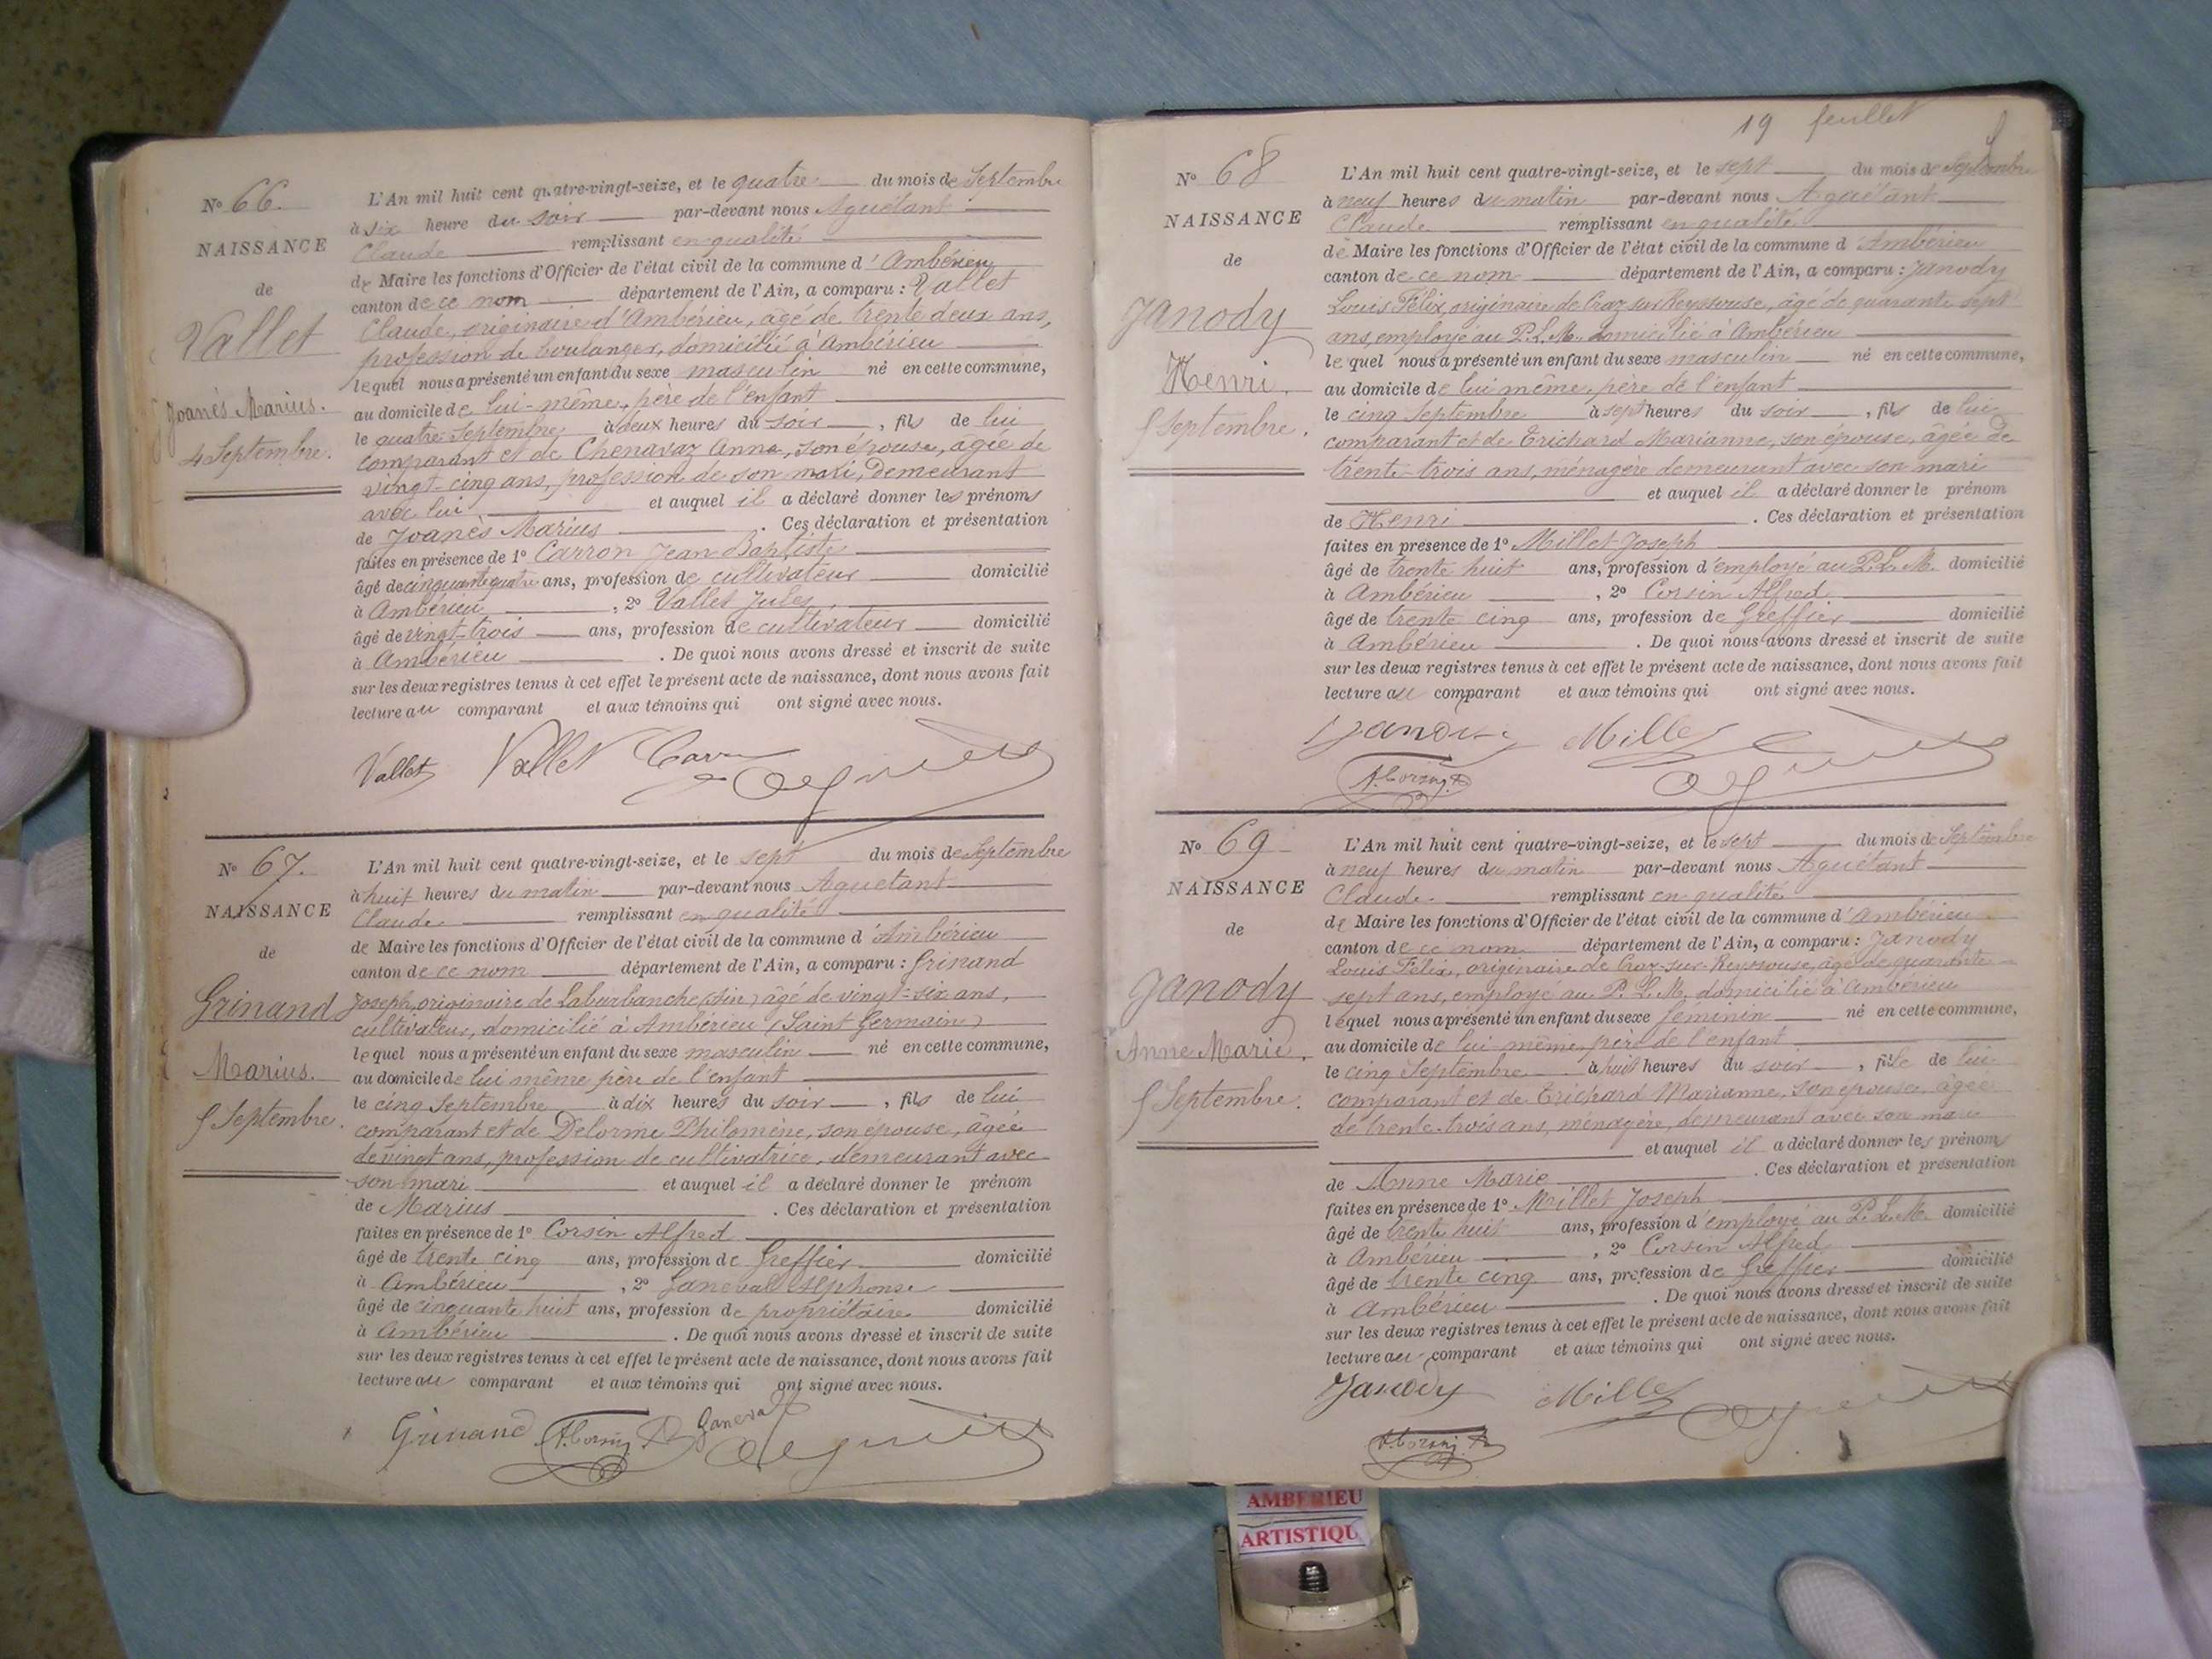 Nº 66.
NAISSANCE
de
Vallet
Joanès Marius.
4 Septembre.
L'An mil huit cent quatre-vingt-seize, et le quatre du mois de Septembre
à six heure du soir par-devant nous Aguétant
Claude remplissant en qualité
de Maire les fonctions d'Officier de l'état civil de la commune d'Ambérieu
canton de ce nom département de l'Ain, a comparu : Vallet
Claude, originaire d'Ambérieu, âgé de trente deux ans,
profession de boulanger, domicilié à Ambérieu
lequel nous a présenté un enfant du sexe masculin né en cette commune,
au domicile de lui-même, père de l'enfant
le quatre Septembre à deux heures du soir, fils de lui
comparant et de Chenavaz Anna, son épouse, âgée de
vingt-cinq ans, profession de son mari, demeurant
avec lui et auquel il a déclaré donner les prénoms
de Joanès Marius. Ces déclaration et présentation
faites en présence de 1º Carron Jean Baptiste
âgé de cinquante quatre ans, profession de cultivateur domicilié
à Ambérieu, 2º Vallet Jules
âgé de vingt-trois ans, profession de cultivateur domicilié
à Ambérieu. De quoi nous avons dressé et inscrit de suite
sur les deux registres tenus à cet effet le présent acte de naissance, dont nous avons fait
lecture au comparant et aux témoins qui ont signé avec nous.
Vallet Vallet
Nº 67.
NAISSANCE
de
Grinand
Marius.
5 Septembre.
L'An mil huit cent quatre-vingt-seize, et le sept du mois de Septembre
à huit heures du matin par-devant nous Aguetant
Claude remplissant en qualité
de Maire les fonctions d'Officier de l'état civil de la commune d'Ambérieu
canton de ce nom département de l'Ain, a comparu : Grinand
Joseph, originaire de Laburbanche (Ain) âgé de vingt-six ans,
cultivateur, domicilié à Ambérieu (Saint Germain)
lequel nous a présenté un enfant du sexe masculin né en cette commune,
au domicile de lui même père de l'enfant
le cinq Septembre à dix heures du soir, fils de lui
comparant et de Delorme Philomène, son épouse, âgée
de vingt ans, profession de cultivatrice, demeurant avec
son mari et auquel il a déclaré donner le prénom
de Marius. Ces déclaration et présentation
faites en présence de 1º Corsin Alfred
âgé de trente cinq ans, profession de Greffier domicilié
à Ambérieu, 2º Ganeval Alphonse
âgé de cinquante huit ans, profession de propriétaire domicilié
à Ambérieu. De quoi nous avons dressé et inscrit de suite
sur les deux registres tenus à cet effet le présent acte de naissance, dont nous avons fait
lecture au comparant et aux témoins qui ont signé avec nous.
Grinand A. Corsin Ganeval
19 feuillet
Nº 68
NAISSANCE
de
Janody
Henri.
5 Septembre.
L'An mil huit cent quatre-vingt-seize, et le sept du mois de Septembre
à neuf heures du matin par-devant nous Aguétant
Claude remplissant en qualité
de Maire les fonctions d'Officier de l'état civil de la commune d'Ambérieu
canton de ce nom département de l'Ain, a comparu : Janody
Louis Félix, originaire de Craz sur Reyssouse, âgé de quarante sept
ans, employé au P. L. M. domicilié à Ambérieu
lequel nous a présenté un enfant du sexe masculin né en cette commune,
au domicile de lui même, père de l'enfant
le cinq Septembre à sept heures du soir, fils de lui
comparant et de Trichard Marianne, son épouse, âgée de
trente-trois ans, ménagère demeurant avec son mari
et auquel il a déclaré donner le prénom
de Henri. Ces déclaration et présentation
faites en présence de 1º Millet Joseph
âgé de trente huit ans, profession d'employé au P. L. M. domicilié
à Ambérieu, 2º Corsin Alfred
âgé de trente cinq ans, profession de Greffier domicilié
à Ambérieu. De quoi nous avons dressé et inscrit de suite
sur les deux registres tenus à cet effet le présent acte de naissance, dont nous avons fait
lecture au comparant et aux témoins qui ont signé avec nous.
Janody Millet
A. Corsin
Nº 69
NAISSANCE
de
Janody
Anne Marie.
5 Septembre.
L'An mil huit cent quatre-vingt-seize, et le sept du mois de Septembre
à neuf heures du matin par-devant nous Aguetant
Claude remplissant en qualité
de Maire les fonctions d'Officier de l'état civil de la commune d'Ambérieu
canton de ce nom département de l'Ain, a comparu : Janody
Louis Félix, originaire de Craz-sur-Reyssouse, âgé de quarante-
sept ans, employé au P. L. M, domicilié à Ambérieu
lequel nous a présenté un enfant du sexe féminin né en cette commune,
au domicile de lui-même, père de l'enfant
le cinq Septembre à huit heures du soir, fille de lui
comparant et de Trichard Marianne, son épouse, âgée
de trente-trois ans, ménagère, demeurant avec son mari
et auquel il a déclaré donner les prénoms
de Anne Marie. Ces déclaration et présentation
faites en présence de 1º Millet Joseph
âgé de trente huit ans, profession d'employé au P. L. M. domicilié
à Ambérieu, 2º Corsin Alfred
âgé de trente cinq ans, profession de Greffier domicilié
à Ambérieu. De quoi nous avons dressé et inscrit de suite
sur les deux registres tenus à cet effet le présent acte de naissance, dont nous avons fait
lecture au comparant et aux témoins qui ont signé avec nous.
Janody Millet
A. Corsin
AMBERIEU
ARTISTIQU